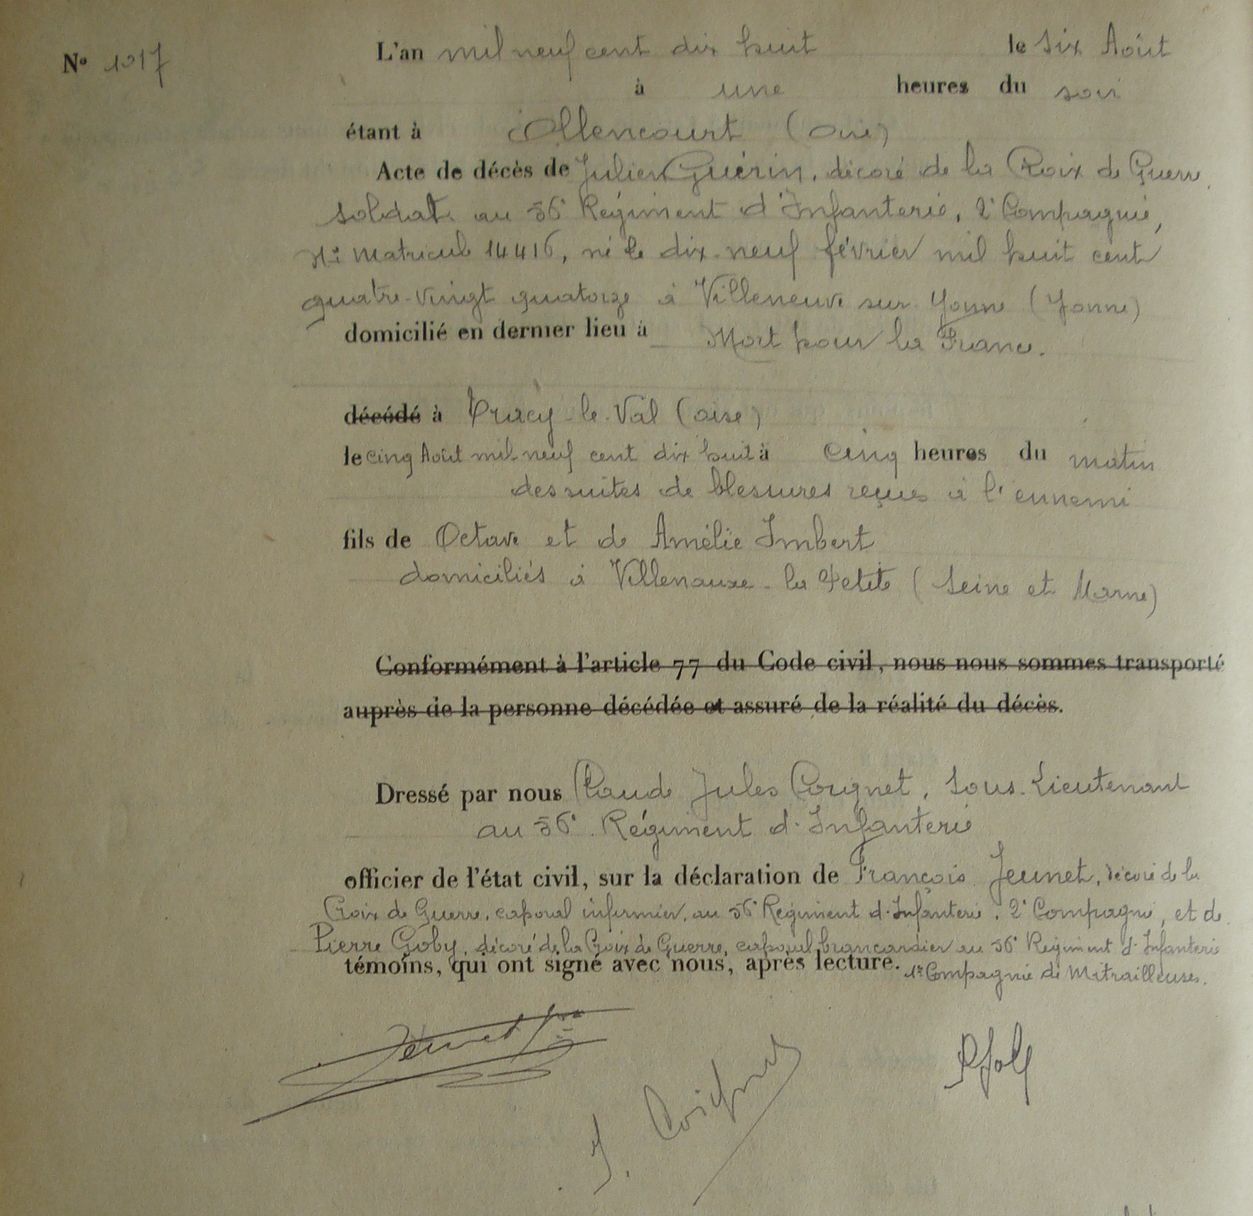 N° 1017
L'an mil neuf cent dix huit le six Août
à une heures du soir
étant à Ollencourt (Oise)
Acte de décès de Julien Guérin, décoré de la Croix de Guerre,
soldat au 56e Régiment d'Infanterie, 2e Compagnie,
N° Matricule 14416, né le dix-neuf février mil huit cent
quatre-vingt quatorze à Villeneuve sur Yonne (Yonne)
domicilié en dernier lieu à Mort pour la France.
décédé à Tracy-le-Val (Oise)
le cinq Août mil neuf cent dix huit à cinq heures du matin
des suites de blessures reçues à l'ennemi
fils de Octave et de Amélie Imbert
domiciliés à Villenauxe-la Petite (Seine et Marne)
Conformément à l'article 77 du Code civil, nous nous sommes transporté
auprès de la personne décédée et assuré de la réalité du décès.
Dressé par nous Claude Jules Coignet, Sous-Lieutenant
au 56e Régiment d'Infanterie
officier de l'état civil, sur la déclaration de François Jeunet, décoré de la
Croix de Guerre, caporal infirmier, au 56e Régiment d'Infanterie, 2e Compagnie, et de
Pierre Goby, décoré de la Croix de Guerre, caporal brancardier au 56e Régiment d'Infanterie
témoins, qui ont signé avec nous, après lecture. 1re Compagnie de Mitrailleuses.
Jeunet
J. Coignet